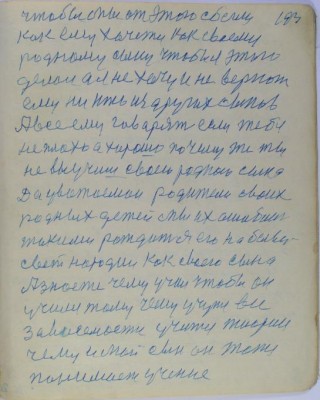 194
чтобы спи от этого сбегу
как ему хочети как своему
родному сыну чтобы этого
делои а я не хочу и не вернот
ему ни кто из других сынов
А все ему говарят если тебя
не плохо а хорошо почему же ты
не выучиш своего родного сына
Да уважаемои родители своих
родных детей
такими рождаится его на белы
свет народил как своего сына
А знаете чему учаи чтобы он
учили тому чему учути вы
зависемости учити теории
чему и мой сын он тоже
понимает учение